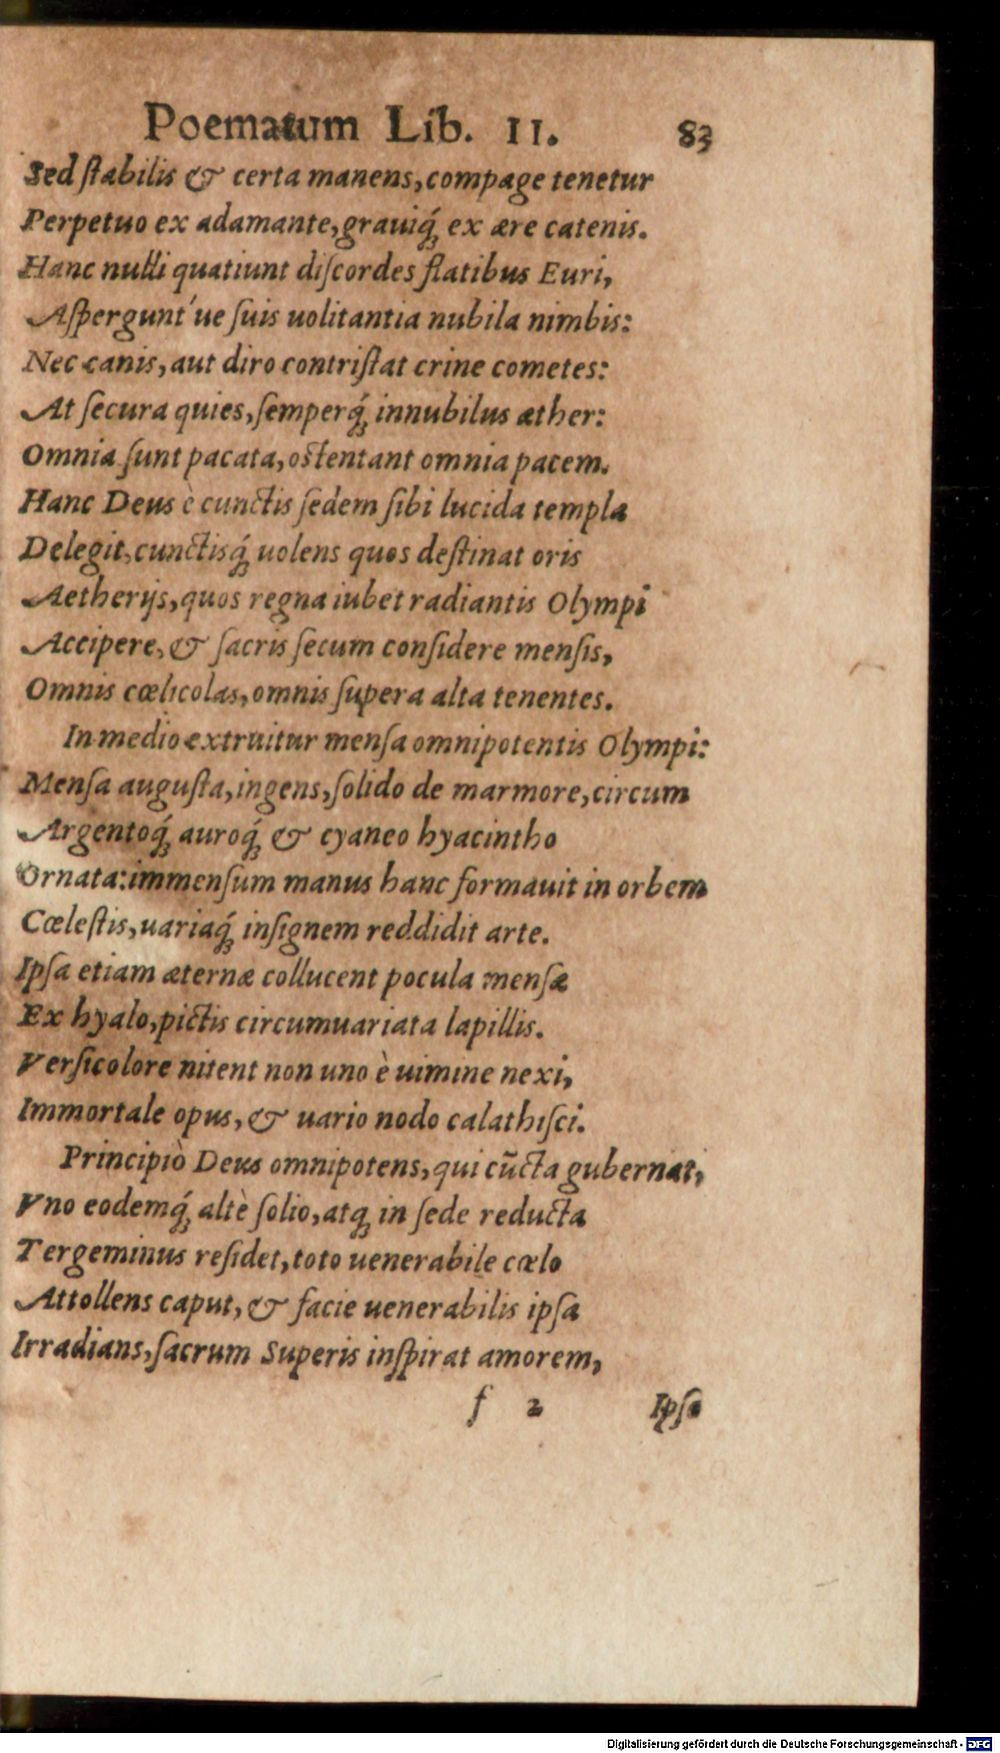 Poematum Lib. II. 83
Sed ſtabilis & certa manens, compage tenetur
Perpetuo ex adamante, grauiq́ꝫ ex ære catenis.
Hanc nulli quatiunt diſcordes flatibus Euri,
Aſpergunt´ue ſuis uolitantia nubila nimbis:
Nec canis, aut diro contriſtat crine cometes:
At ſecura quies, ſemperq́ꝫ innubilus æther:
Omnia ſunt pacata, oſtentant omnia pacem.
Hanc Deus è cunctis ſedem ſibi lucida templa
Delegit, cunctisq́ꝫ uolens quos deſtinat oris
Aetherijs, quos regna iubet radiantis Olympi
Accipere, & ſacris ſecum conſidere menſis,
Omnis cœlicolas, omnis ſupera alta tenentes.
In medio extruitur menſa omnipotentis Olympi:
Menſa auguſta, ingens, ſolido de marmore, circum
Argentoq́ꝫ auroq́ꝫ & cyaneo hyacintho
Ornata: immenſum manus hanc formauit in orbem
Cœleſtis, uariaq́ꝫ inſignem reddidit arte.
Ipſa etiam æternæ collucent pocula menſæ
Ex hyalo, pictis circumuariata lapillis.
Verſicolore nitent non uno è uimine nexi,
Immortale opus, & uario nodo calathiſci.
Principiò Deus omnipotens, qui cūcta gubernat,
Vno eodemq́ꝫ altè ſolio, atqꝫ in ſede reducta
Tergeminus reſidet, toto uenerabile cœlo
Attollens caput, & facie uenerabilis ipſa
Irradians, ſacrum Superis inſpirat amorem,
f 2 Ipſa
Digitalisierung gefördert durch die Deutsche Forschungsgemeinschaft - DFG